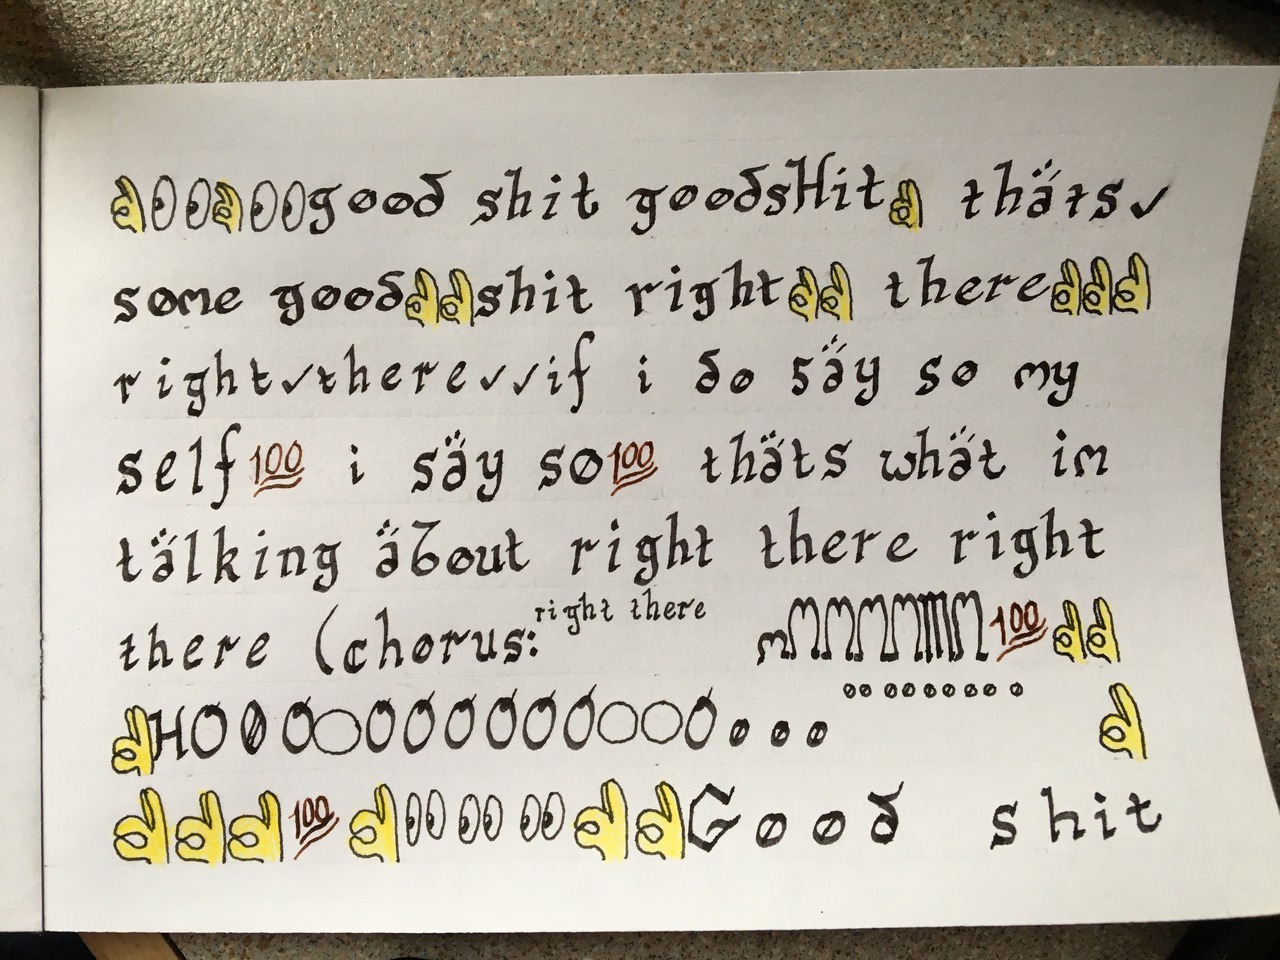 👌👀👌👀good shit goodsHit👌 thäts✓
some good👌👌shit right👌👌 there👌👌👌
right✓there✓✓if i do säy so my
self💯 i säy so💯 thäts whät im
tälking äbout right there right
there (chorus: right there mMMMMMM💯👌👌
👌HO0OOOOOOOOOOOOooo ooooooooo 👌
👌👌👌💯👌👀👀👀👌👌Good shit